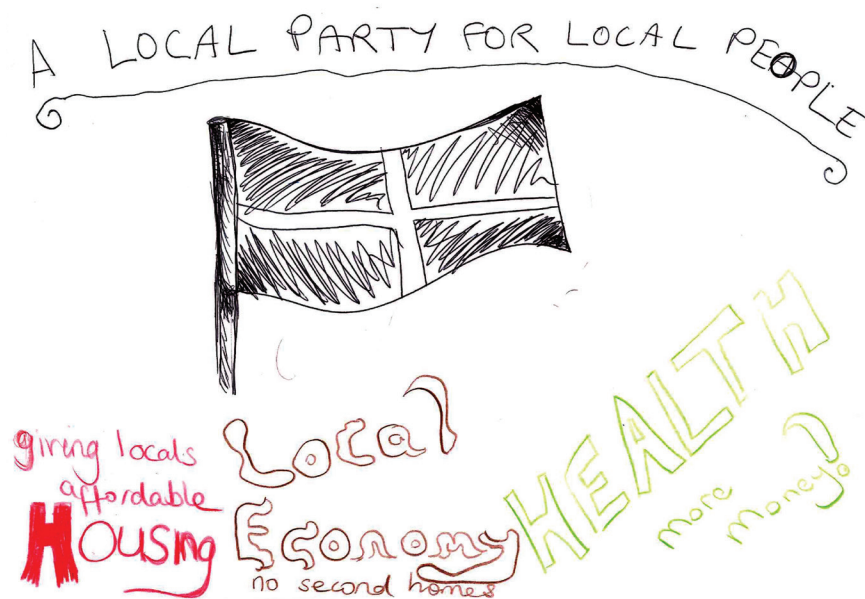 A LOCAL PARTY FOR LOCAL PEOPLE
giving locals
affordable
Housing
Local
Economy
no second homes
HEALTH
more money!